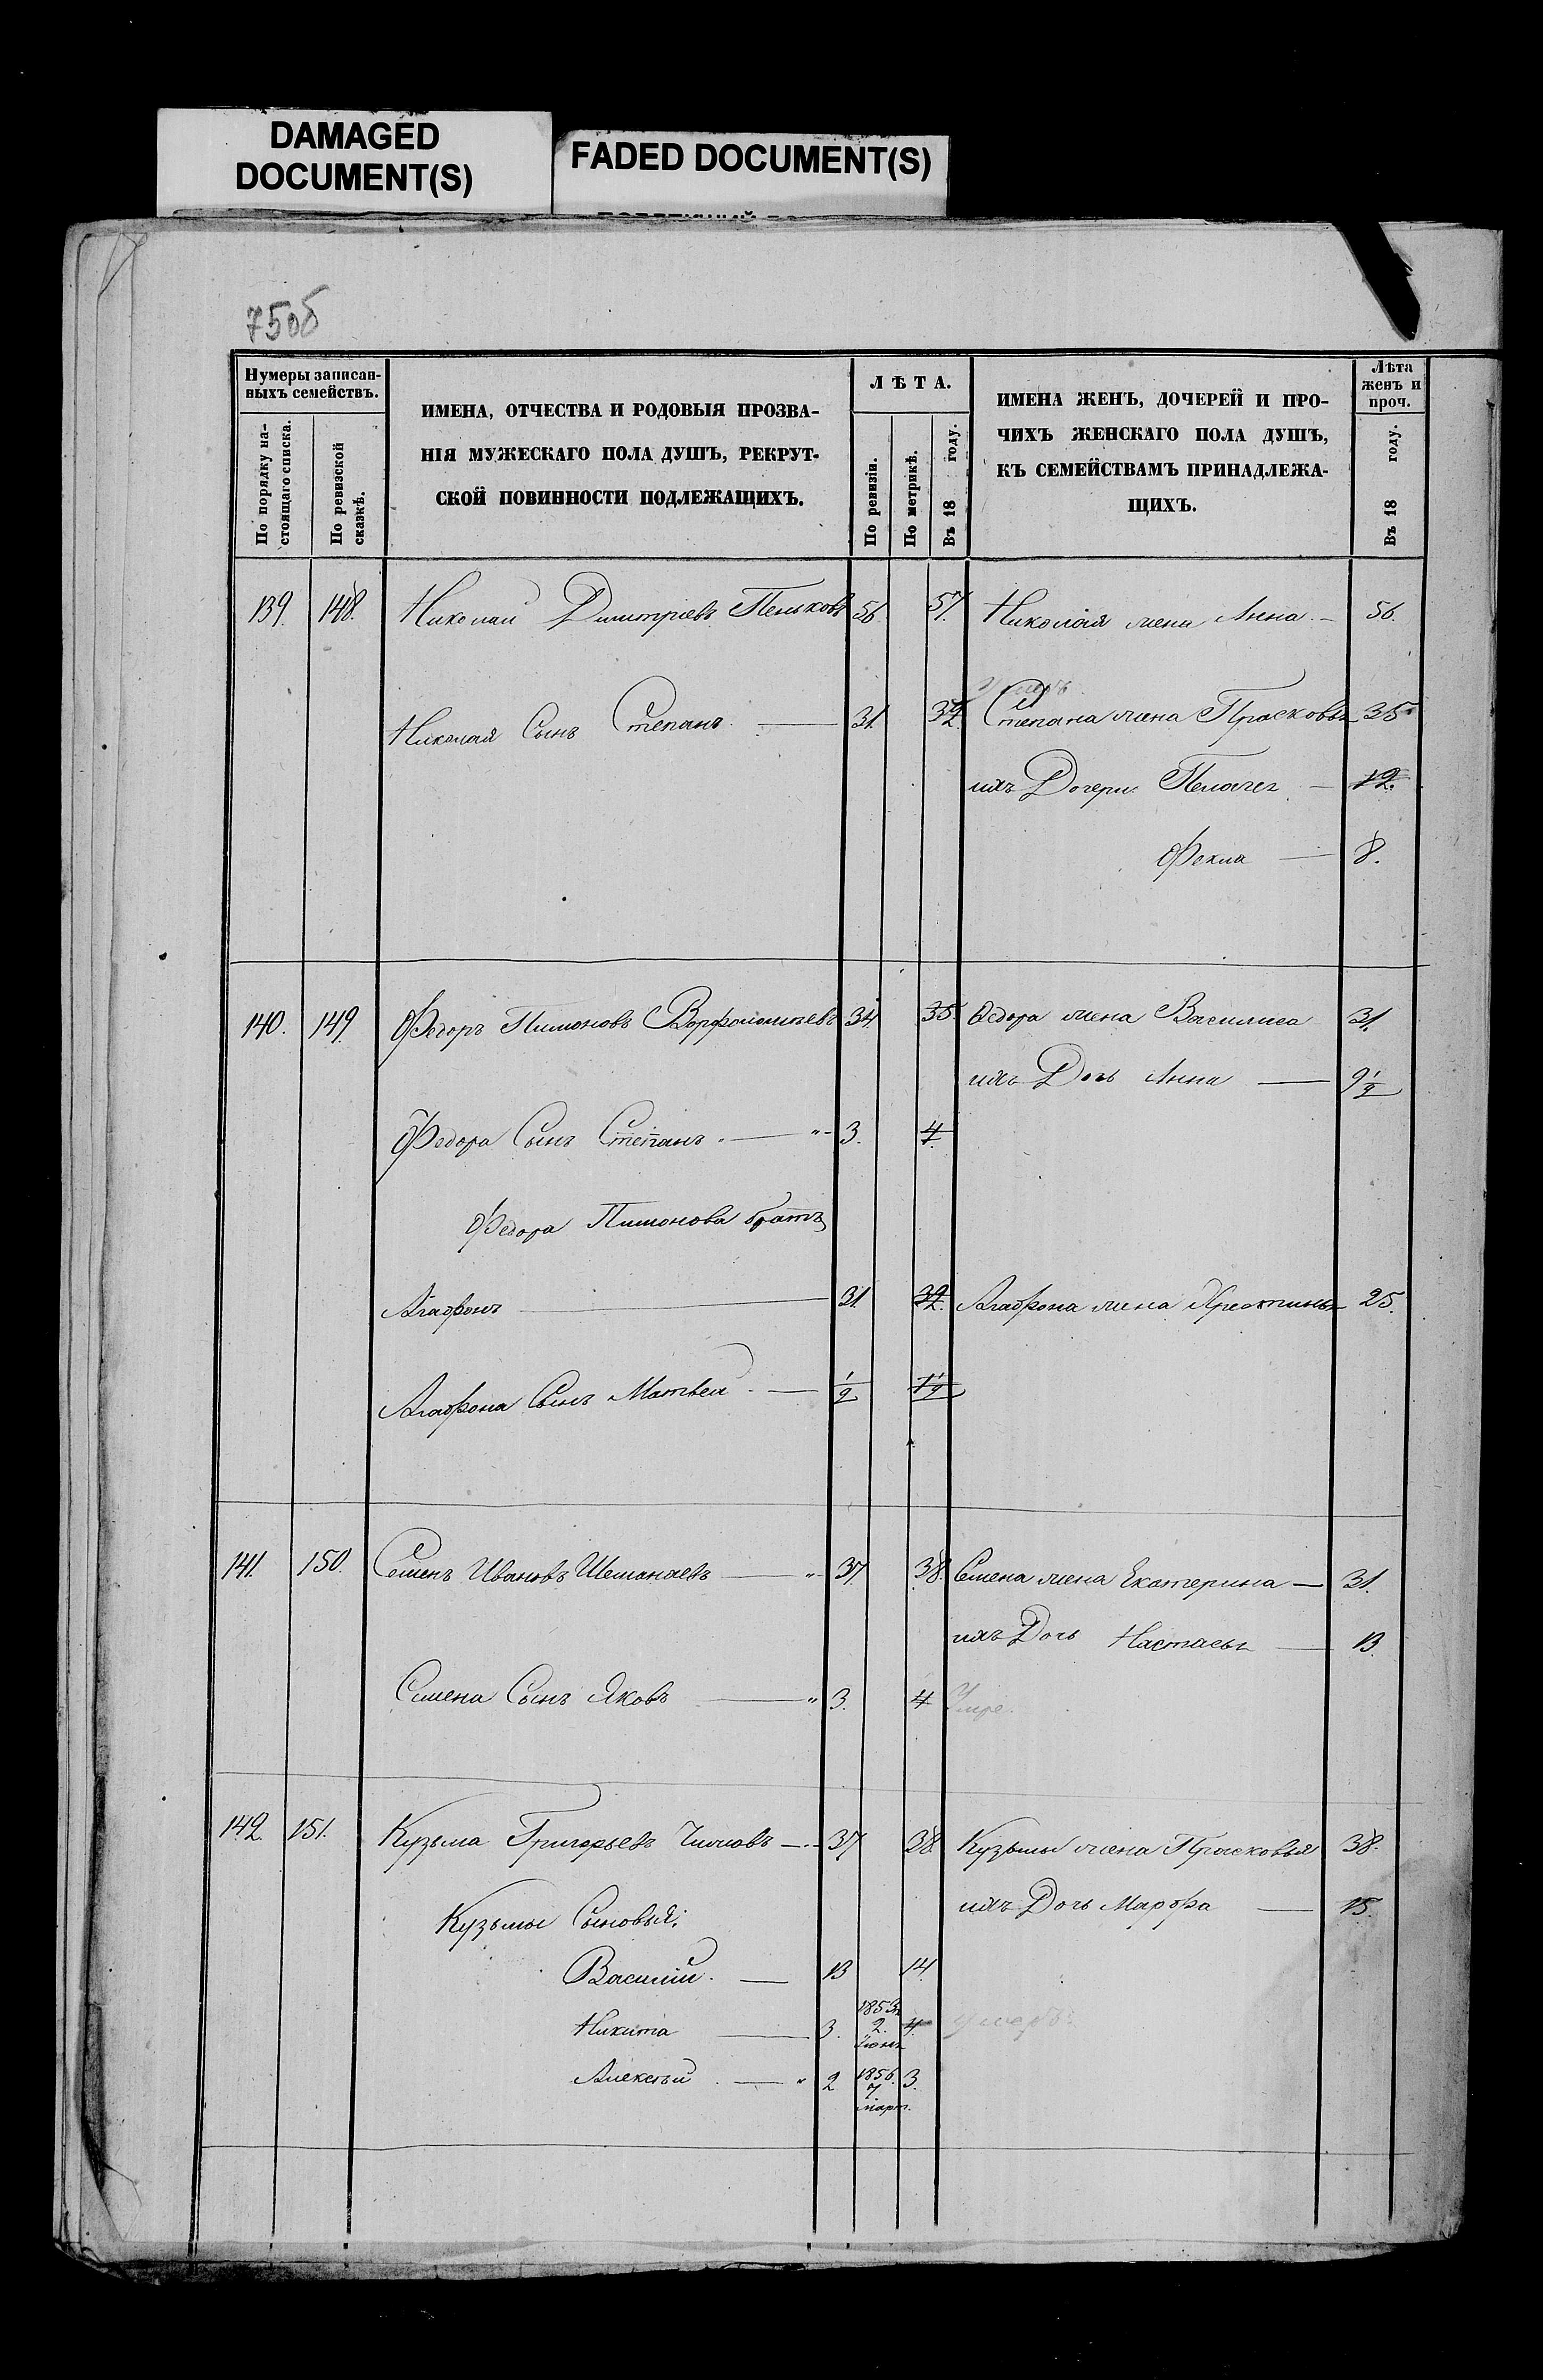 DAMAGED
DOCUMENT(S)
FADED DOCUMENT(S)
750б
Нумеры записан-
ныхъ семействъ.
По порядку на-
стоящаго списка.
По ревизской
сказкѣ.
ИМЕНА, ОТЧЕСТВА И РОДОВЫЯ ПРОЗВА-
НІЯ МУЖЕСКАГО ПОЛА ДУШЪ, РЕКРУТ-
СКОЙ ПОВИННОСТИ ПОДЛЕЖАЩИХЪ.
ЛѢТА.
По ревизіи.
По метрикѣ.
Въ 18 году.
ИМЕНА ЖЕНЪ, ДОЧЕРЕЙ И ПРО-
ЧИХЪ ЖЕНСКАГО ПОЛА ДУШЪ,
КЪ СЕМЕЙСТВАМЪ ПРИНАДЛЕЖА-
ЩИХЪ.
Лѣта
женъ и
проч.
Въ 18 году.
139. 148. Николай Димитріевъ Пеньковъ 56. 57. Николая жена Анна 56.
умеръ
Николая Сынъ Степанъ 31. 32. Степана жена Прасковья 35
ихъ Дочери Пелагея 12.
Фекла 8.
140. 149. Федоръ Пимоновъ 34. 35. Федора жена Василиса 31.
ихъ Дочь Анна 9 1/2
Федора Сынъ Степанъ 3. 4.
Федора Пимонова братъ
Агафонъ 31. 32. Агафона жена Христинья 25.
Агафона Сынъ Матвей 1/2 1 1/2
141. 150. Семенъ Ивановъ Шеманаевъ 37. 38. Семена жена Екатерина 31.
ихъ Дочь Настасья 13.
Семена Сынъ Яковъ 3. 4 Умре.
142. 151. Кузьма Григорьевъ 37 38. Кузьмы жена Прасковья 38.
ихъ Дочь Марфа 15.
Кузьмы Сыновья:
Василій. 13 14
Никита 3. 1853 2. Іюня 4. умеръ
Алексѣй 2 1856. 7 март. 3.